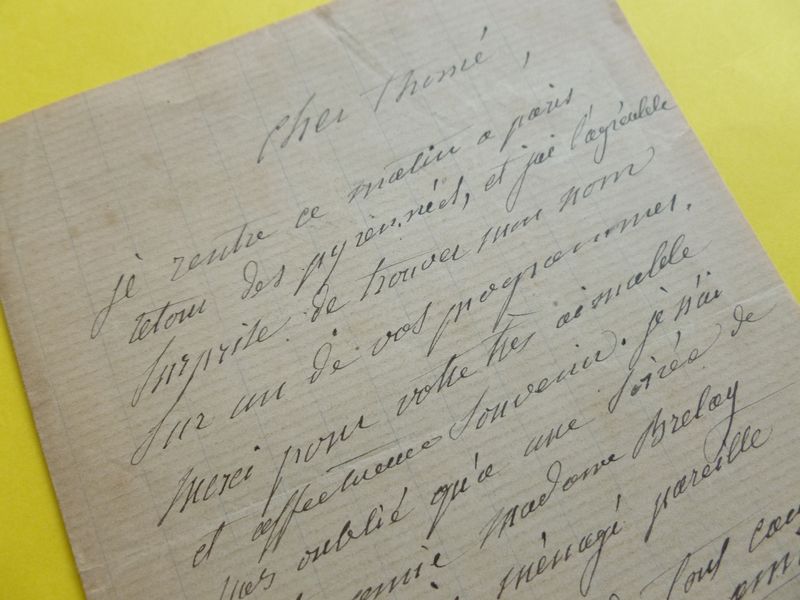 Cher Thomé,
je rentre ce matin a paris
retour des pyrennées, et jai l'agréable
surprise de trouver mon nom
sur un de vos programmes.
merci pour votre très aimable
et affectueux souvenir. je n'ai
pas oublié qu'a une soirée de
amie madame Brelay
ménagé pareille
tout